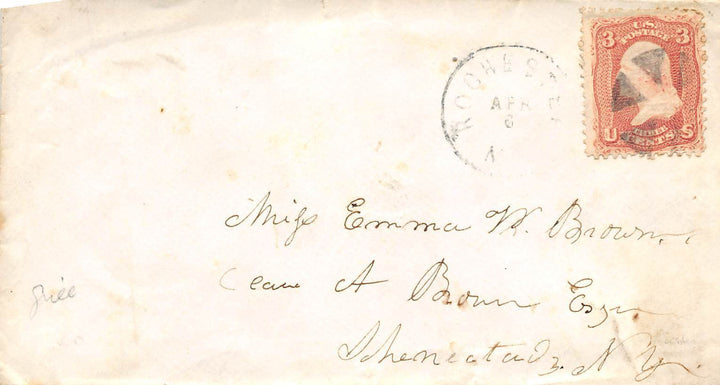 3 U.S. 3
POSTAGE
U THREE S
CENTS
ROCHESTER
APR
6
Miss Emma W. Brown,
Care A Brown Esqr
Schenectady, N Y